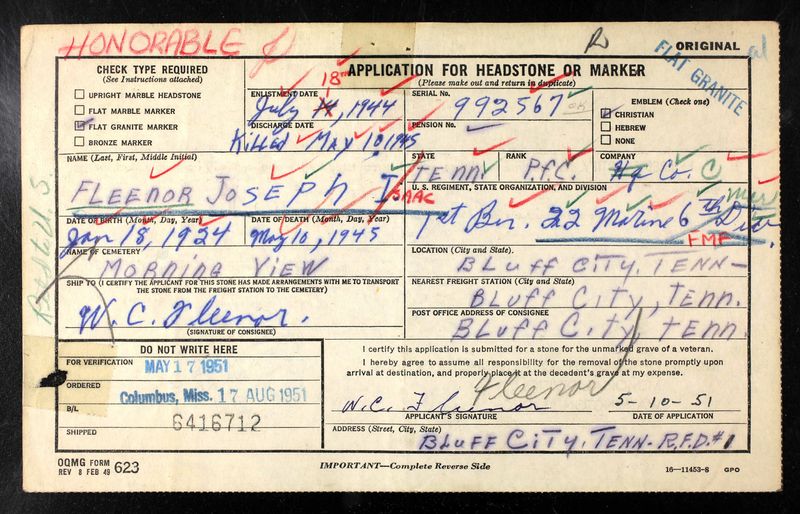 HONORABLE
ORIGINAL
FLAT GRANITE
CHECK TYPE REQUIRED
(See Instructions attached)
UPRIGHT MARBLE HEADSTONE
FLAT MARBLE MARKER
FLAT GRANITE MARKER
BRONZE MARKER
APPLICATION FOR HEADSTONE OR MARKER
(Please make out and return in duplicate)
ENLISTMENT DATE
18
July 14, 1944
SERIAL No.
992567
OK
EMBLEM (Check one)
CHRISTIAN
HEBREW
NONE
DISCHARGE DATE
Killed May 10, 1945
PENSION No.
NAME (Last, First, Middle Initial)
FLEENOR JOSEPH I
ISAAC
STATE
TENN
RANK
P.f.C.
COMPANY
Hq Co. C
U. S. REGIMENT, STATE ORGANIZATION, AND DIVISION
1st Bn. 22 Marine 6th Div.
FMF
DATE OF BIRTH (Month, Day, Year)
Jan 18, 1924
DATE OF DEATH (Month, Day, Year)
May 10, 1945
NAME OF CEMETERY
MORNING VIEW
LOCATION (City and State).
BLUFF CITY, TENN-
SHIP TO (I CERTIFY THE APPLICANT FOR THIS STONE HAS MADE ARRANGEMENTS WITH ME TO TRANSPORT
THE STONE FROM THE FREIGHT STATION TO THE CEMETERY)
NEAREST FREIGHT STATION (City and State)
BLUFF CITY, TENN.
W. C. Fleenor.
(SIGNATURE OF CONSIGNEE)
POST OFFICE ADDRESS OF CONSIGNEE
BLUFF CITY, TENN.
DO NOT WRITE HERE
FOR VERIFICATION
MAY 17 1951
ORDERED
Columbus, Miss. 17 AUG 1951
B/L
6416712
SHIPPED
I certify this application is submitted for a stone for the unmarked grave of a veteran.
I hereby agree to assume all responsibility for the removal of the stone promptly upon
arrival at destination, and properly place it at the decedent's grave at my expense.
Fleenor
W.C. Fleenor
5-10-51
APPLICANT'S SIGNATURE
DATE OF APPLICATION
ADDRESS (Street, City, State)
BLUFF CITY, TENN- R.F.D. #1
OQMG FORM
REV 8 FEB 49 623
IMPORTANT—Complete Reverse Side
16—11453-8 GPO